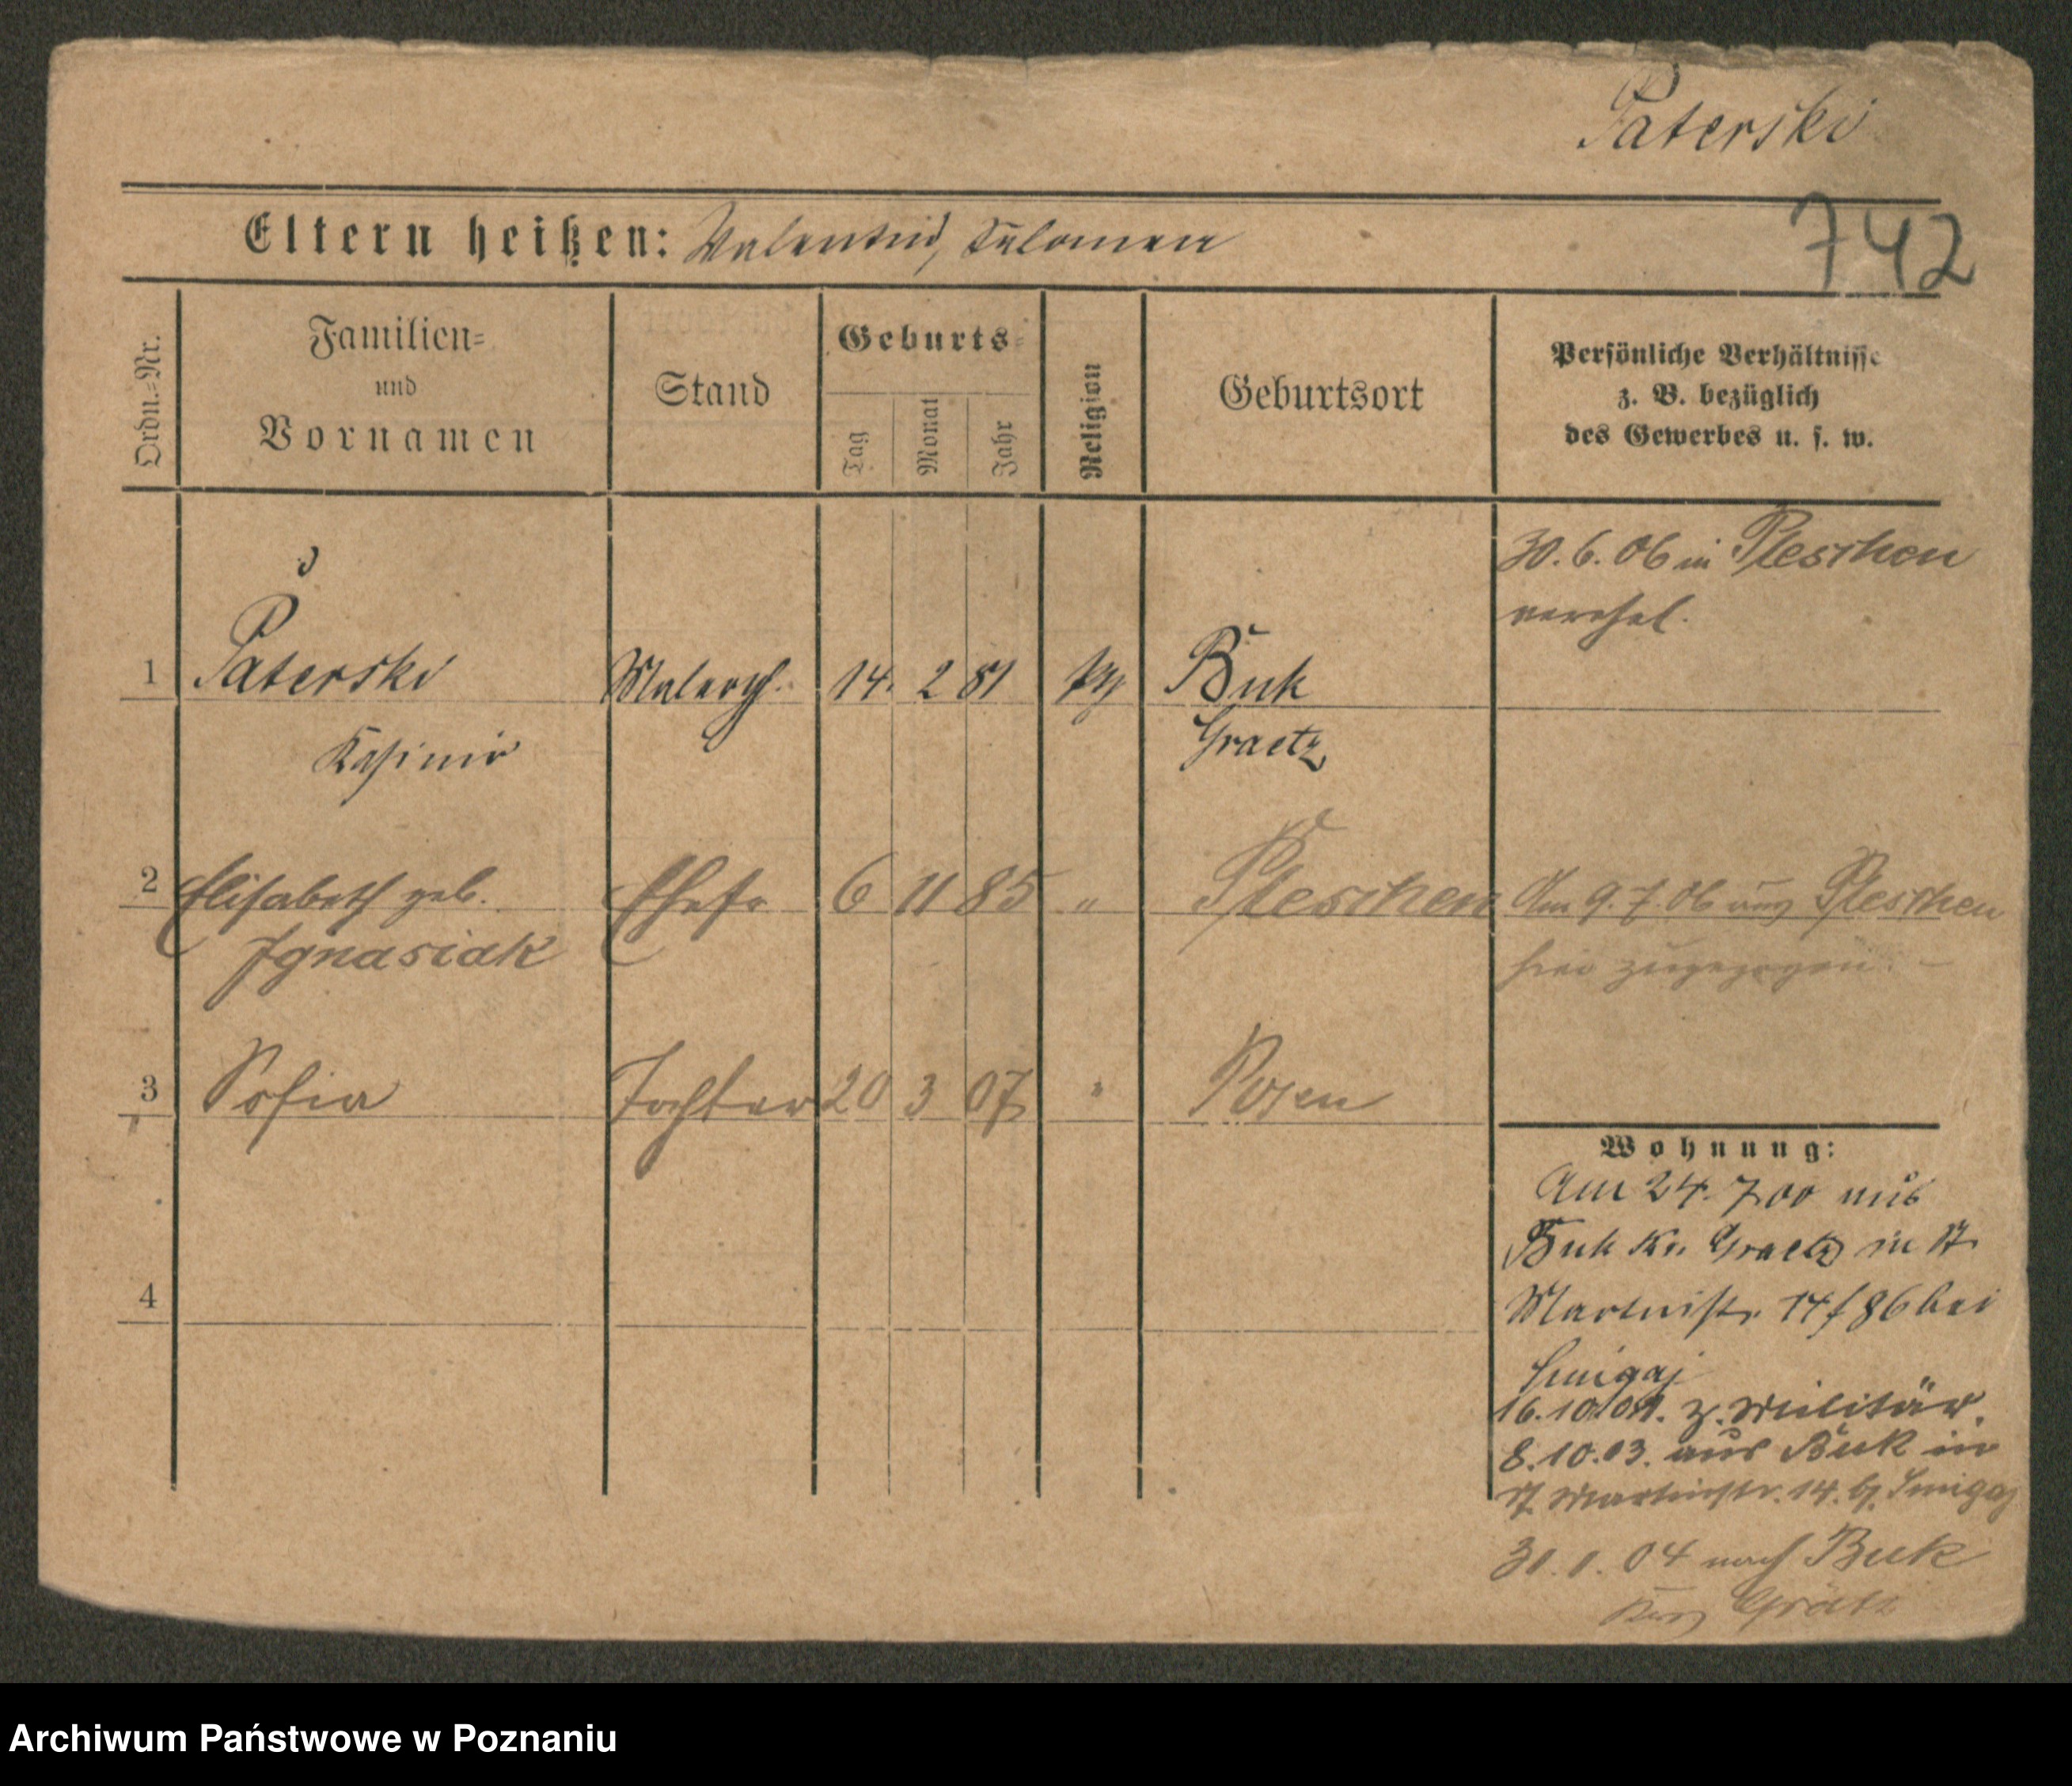 Paterski
742
Eltern heißen: Valentin, Salomea
Ordn.-Nr.
Familien-
und
Vornamen
Stand
Geburts-
Tag
Monat
Jahr
Religion
Geburtsort
Persönliche Verhältnisse
z. B. bezüglich
des Gewerbes u. s. w.
30.6.06 in Pleschen
verehel.
1 Paterski Malergh. 14. 2 81 Buk
Kasimir Graetz
2 Elisabeth geb. Ehefr 6 11 85 " Pleschen Am 9.7.06 aus Pleschen
Ignasiak
hier zugezogen. –
3 Sofia Tochter 20 3 07 " Posen
Wohnung:
Am 24. 7. 00 aus
Buk Kr. Graetz in St
Martinstr. 14/86 bei
Smigaj
16.10.01. z. Militär.
8.10.03. aus Buk in
St Martinstr. 14. b/ Smigaj
4
04 nach Buk
Grätz
Archiwum Państwowe w Poznaniu